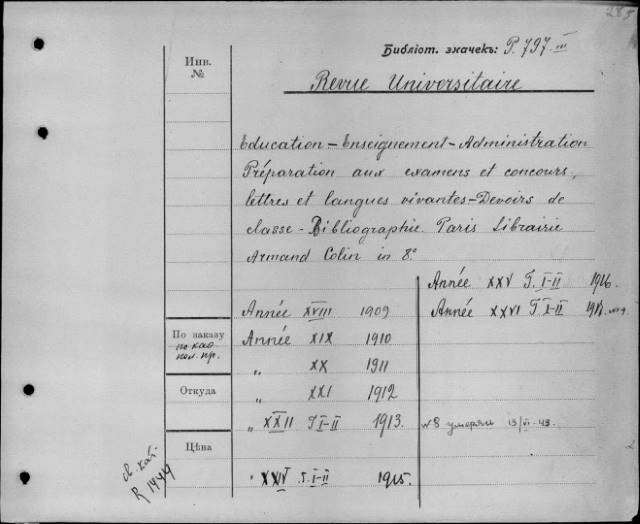 285
Библіот. значекъ: P. 797. III
Инв.
№
Revue Universitaire
Education – Enseignement – Administration
Préparation aux examens et concours,
lettres et langues vivantes – Devoirs de
classe – Bibliographie. Paris Librairie
Armand Colin in 8°
Année XXV T. I–II 1916.
Année XVIII 1909
Année XXVI T. I–II
По заказу
Année XIX 1910
„ XX 1911
Откуда
„ XXI 1912
„ XXII T I–II 1913.
№ 8 13/VI-43
Цѣна
" XXIV T. I–II 1915.
R 1444